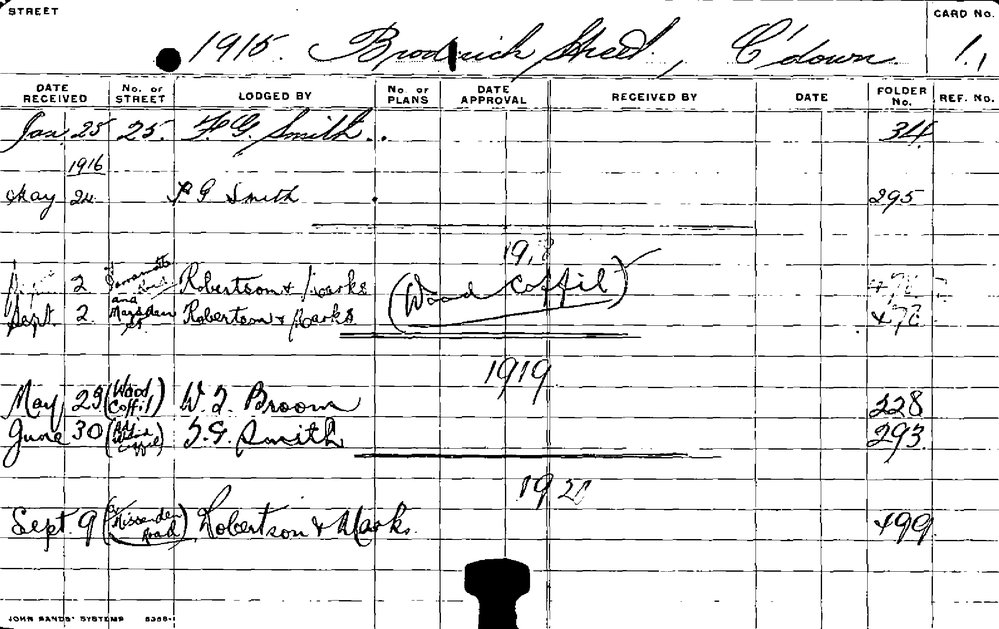 STREET
CARD No.
1915. Broderick Street, C'down. 1.
DATE RECEIVED No. OF STREET LODGED BY No. OF PLANS DATE APPROVAL RECEIVED BY DATE FOLDER No. REF. No.
Jan 25 25. F. G. Smith 34
1916
May 24 F G Smith 295
1918
2 Robertson & Marks (Wood Coffil)
and
Sept. 2 Marsden St Robertson & Marks
1919
May 29 (Wood Coffil) W. J. Broom 228
June 30 (Adj Wood Coffil) F. G. Smith 293
1920
Sept. 9 (Cr Missenden Road) Robertson & Marks. 499
JOHN SANDS' SYSTEMS